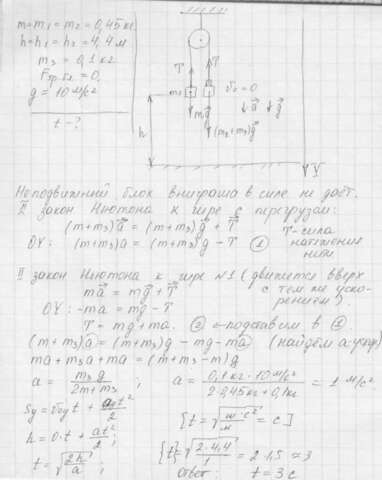 m=m₁=m₂=0,45кг
h=h₁=h₂=4,4м
m₃=0,1кг
Fтр.бл.=0,
g=10м/с²
t-?
T
T
m₁
v₀=0
a g
mg
(m₂+m₃)g
h
Y
Неподвижный блок выигрыша в силе не даёт.
II закон Ньютона к гире с перегрузом:
(m+m₃)a = (m+m₃)g + T
T-сила натяжения нити
OY: (m+m₃)a = (m+m₃)g - T ①
II закон Ньютона к гире №1 (движется вверх с тем же ускорением).
ma = mg + T
OY: -ma = mg - T
T = mg + ma. ② ← подставим в ①.
(m+m₃)a = (m+m₃)g - mg - ma (найдём a-уск)
ma + m₃a + ma = (m+m₃-m)g
a = m₃g/(2m+m₃) ; a = 0,1кг·10м/с²/(2·0,45кг+0,1кг) = 1 м/с².
Sy = v₀y t + ayt²/2
h = 0·t + at²/2 ;
[t = √(м·с²/м) = c]
t = √(2h/a) ;
{t} = √(2·4,4/1) = 2,15 ≈ 3
Ответ: t = 3с